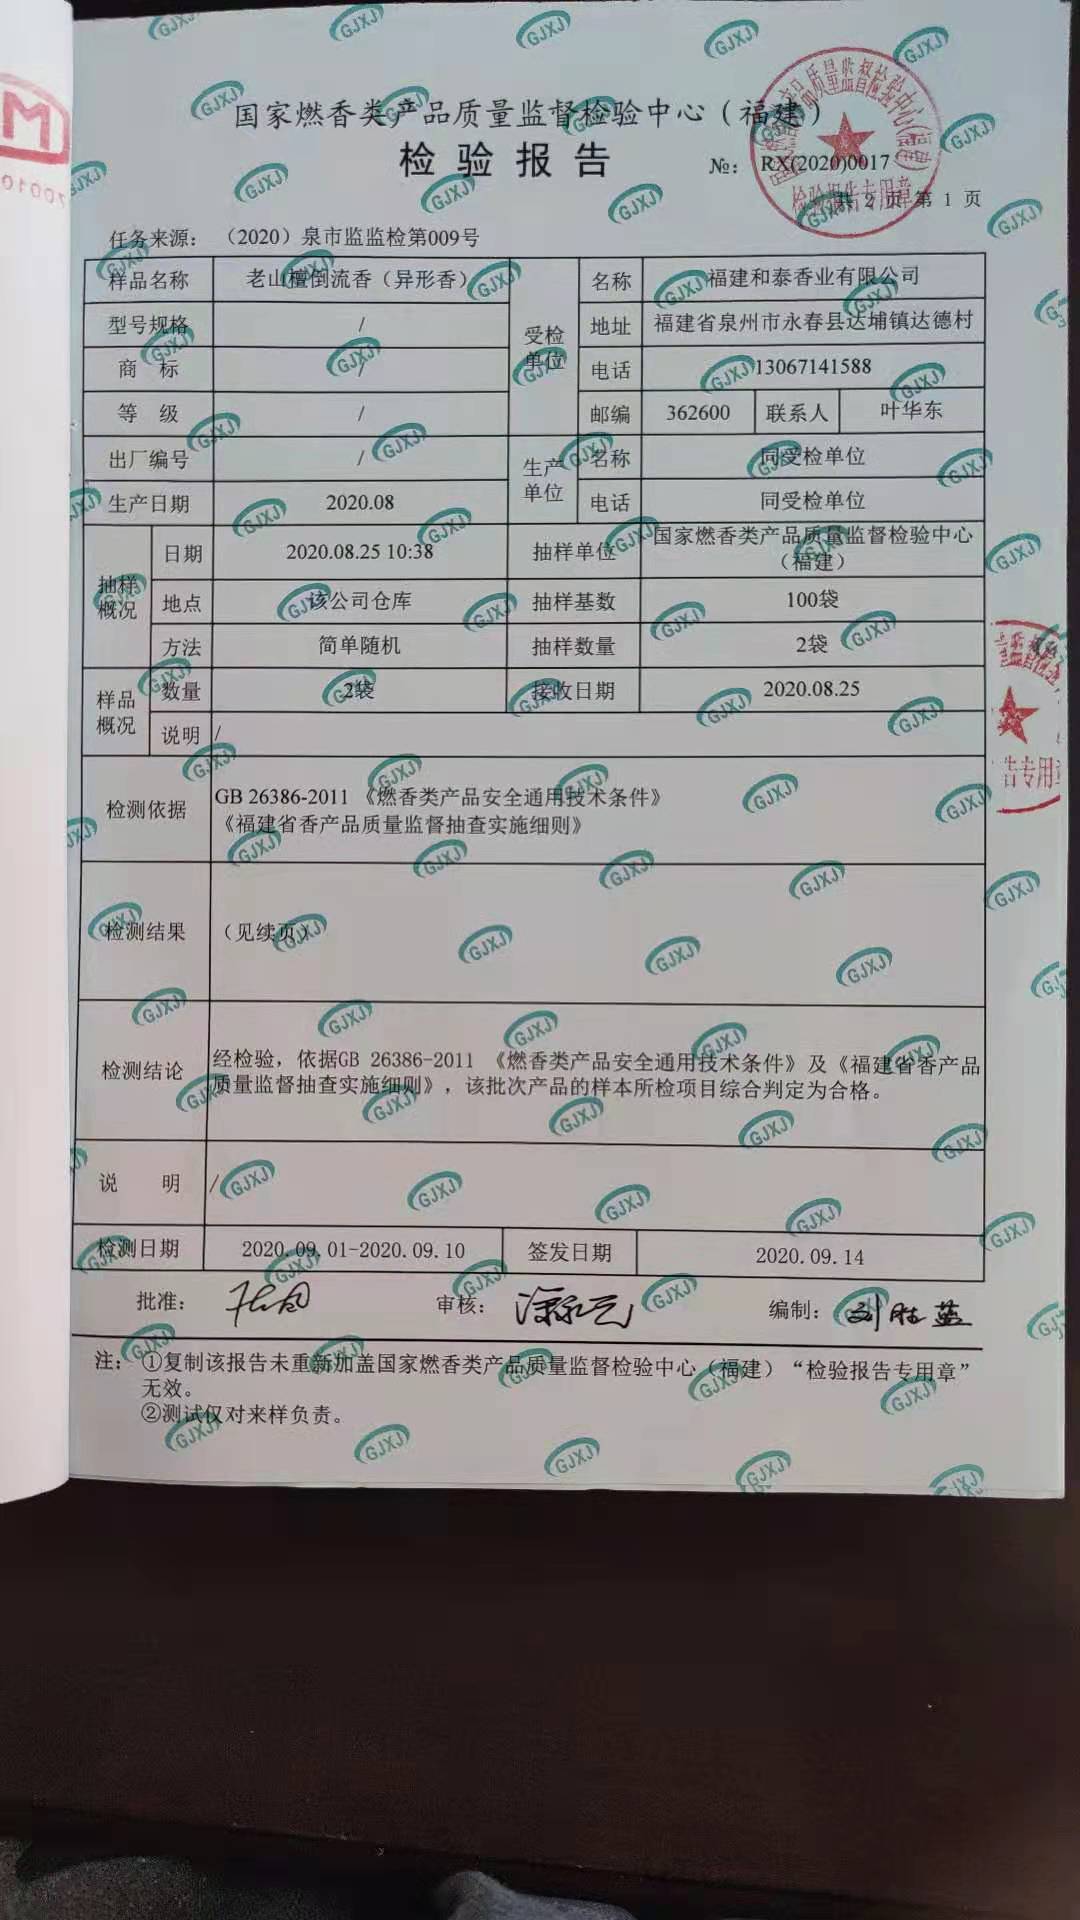 国家燃香类产品质量监督检验中心（福建）
检验报告
№： RX(2020)0017
共 2 页 第 1 页
任务来源：（2020）泉市监监检第009号
样品名称 老山檀倒流香（异形香） 受检单位 名称 福建和泰香业有限公司
型号规格 / 地址 福建省泉州市永春县达埔镇达德村
商 标 / 电话 13067141588
等 级 / 邮编 362600 联系人 叶华东
出厂编号 / 生产单位 名称 同受检单位
生产日期 2020.08 电话 同受检单位
抽样概况 日期 2020.08.25 10:38 抽样单位 国家燃香类产品质量监督检验中心（福建）
地点 该公司仓库 抽样基数 100袋
方法 简单随机 抽样数量 2袋
样品概况 数量 2袋 接收日期 2020.08.25
说明 /
检测依据 GB 26386-2011 《燃香类产品安全通用技术条件》
《福建省香产品质量监督抽查实施细则》
检测结果 （见续页）
检测结论 经检验，依据GB 26386-2011 《燃香类产品安全通用技术条件》及《福建省香产品
质量监督抽查实施细则》，该批次产品的样本所检项目综合判定为合格。
说 明 /
检测日期 2020.09.01-2020.09.10 签发日期 2020.09.14
批准： 审核： 编制： 刘胜蓝
注：①复制该报告未重新加盖国家燃香类产品质量监督检验中心（福建）“检验报告专用章”
无效。
②测试仅对来样负责。
检验报告专用章
告专用章
GJXJ